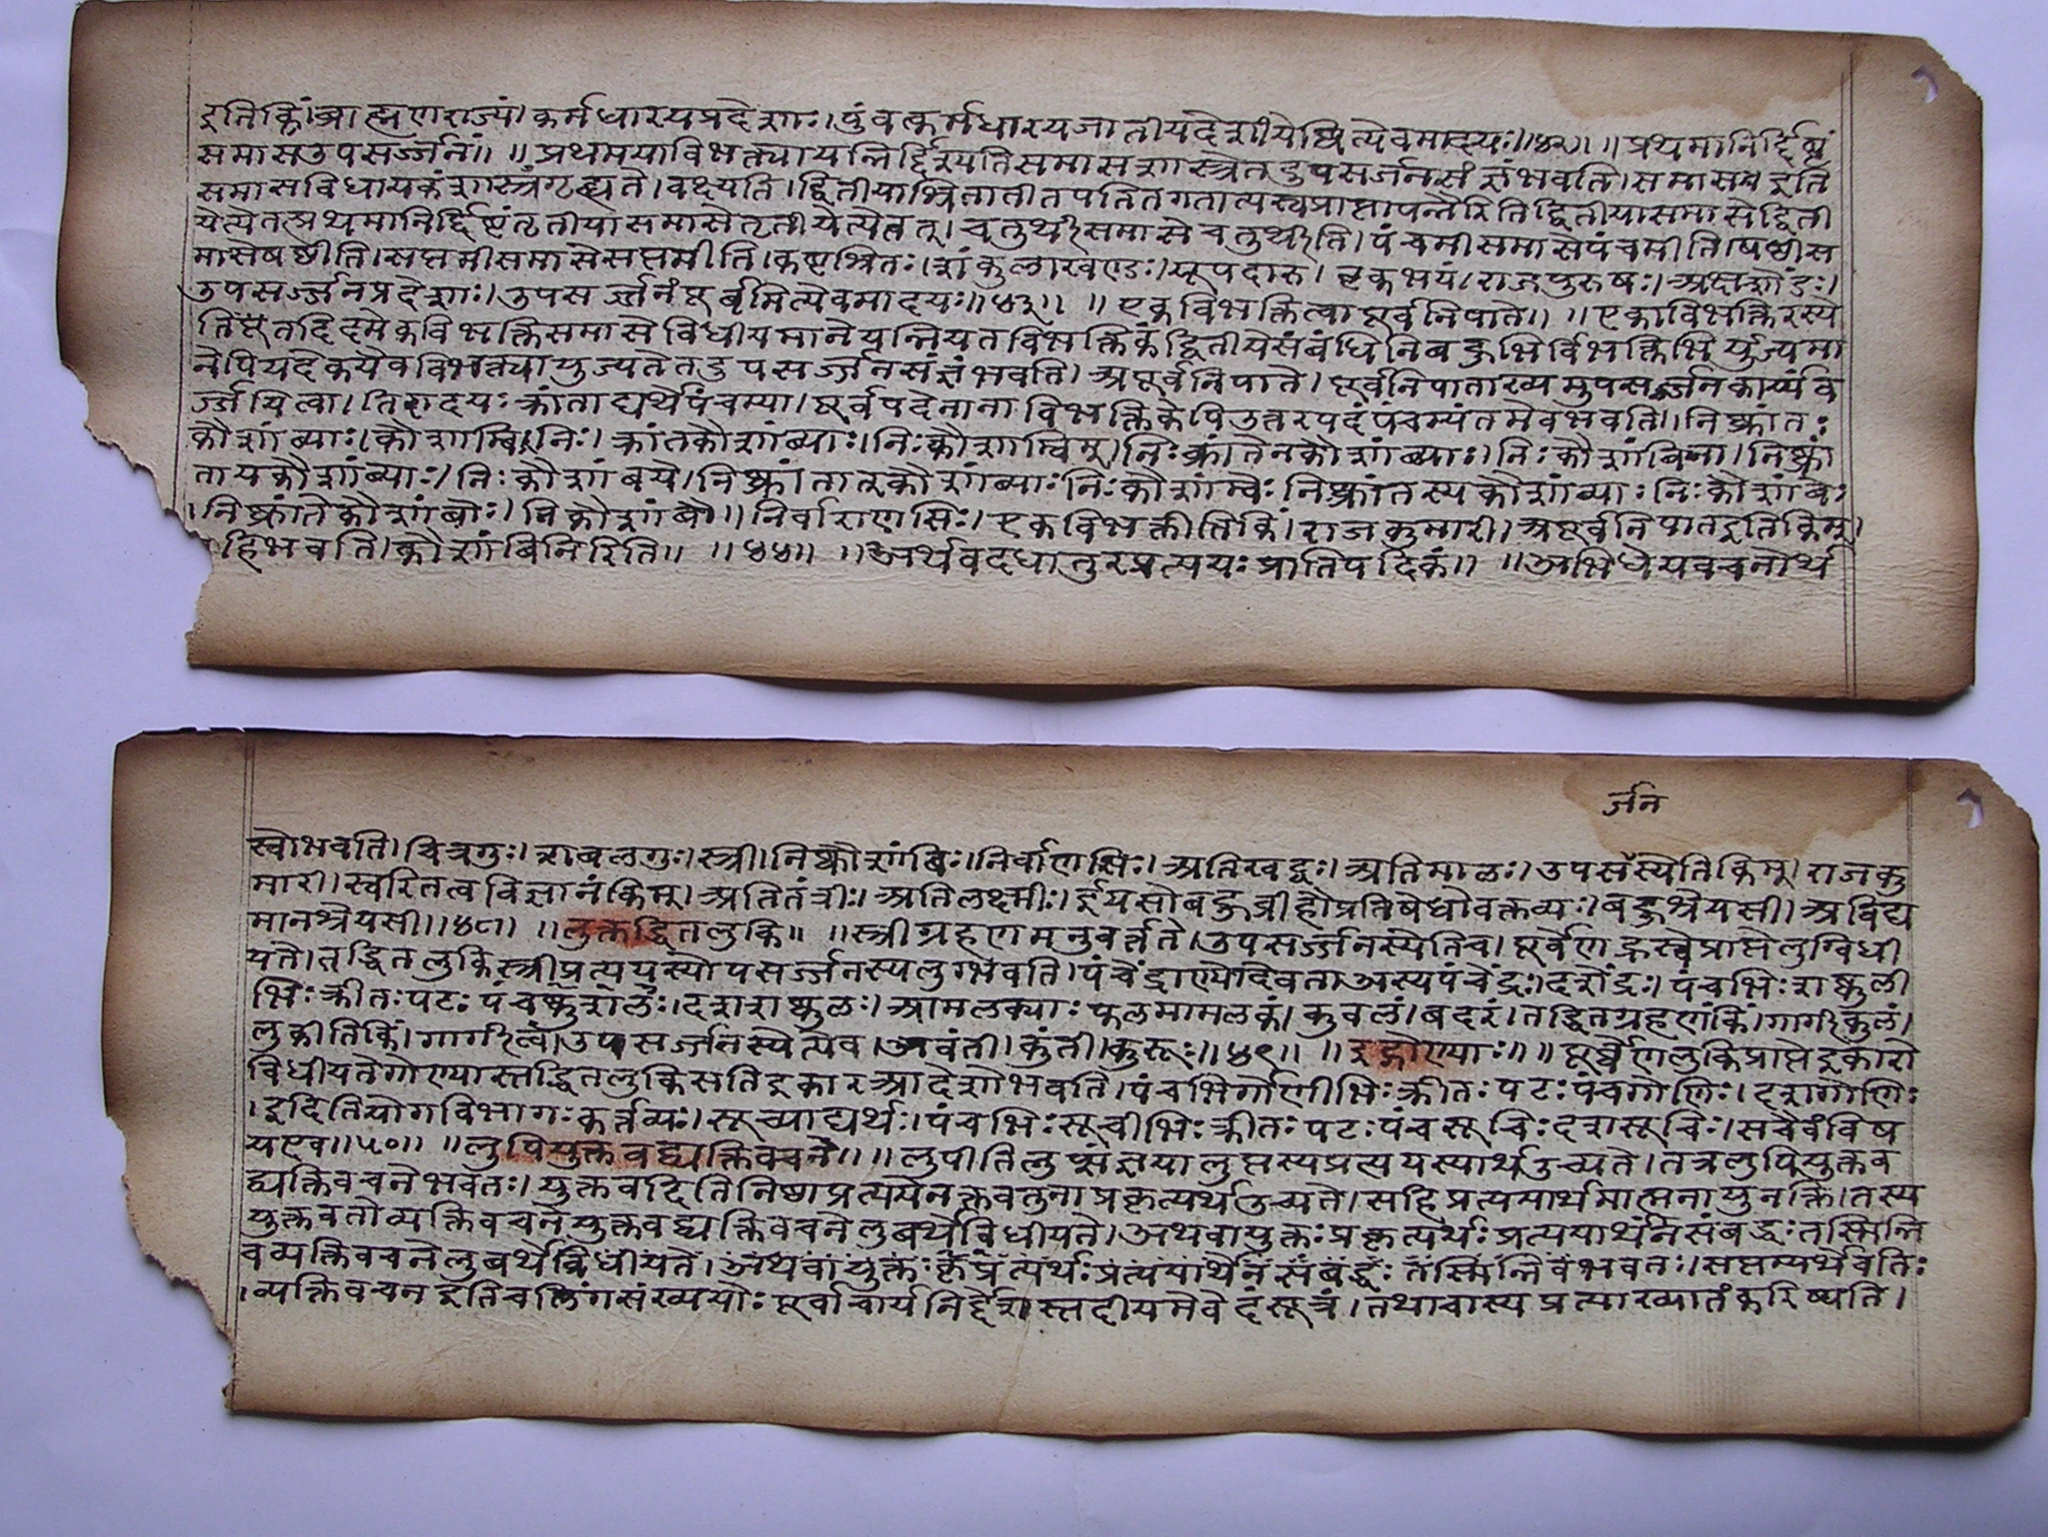 इतिकिं।ब्राह्मणराज्यं।कर्मधारयप्रदेशाः।पुंवत्कर्मधारयजातीयदेशीयेष्वित्येवमादयः।।४२।। ।।प्रथमानिर्द्दिष्टं
समासउपसर्ज्जनं।। ।।प्रथमयाविभक्त्यायन्निर्द्दिश्यतिसमासशास्त्रेतदुपसर्जनसंज्ञंभवति।समासइति
समासविधायकंशास्त्रंगृह्यते।वक्ष्यति।द्वितीयाश्रितातीतपतितगतात्यस्तप्राप्तापन्नैरितिद्वितीयासमासेद्विती
येत्येतत्प्रथमानिर्द्दिष्टंतृतीयासमासेतृतीयेत्येतत्।चतुर्थीसमासेचतुर्थीति।पंचमीसमासेपंचमीति।षष्ठीस
मासेषष्ठीति।सप्तमीसमासेसप्तमीति।कष्टश्रितः।शंकुलाखण्डः।यूपदारु।वृकभयं।राजपुरुषः।अक्षशौंडः।
उपसर्ज्जनप्रदेशाः।उपसर्ज्जनंपूर्वमित्येवमादयः।।४३।। ।।एकविभक्तिचापूर्वनिपाते।। ।।एकाविभक्तिरस्ये
तितदिदमेकविभक्तिसमासेविधीयमानेयन्नियतविभक्तिकंद्वितीयेसंबंधिनिबहुभिर्विभक्तिभिर्युज्यमा
नेपियदेकयैवविभक्त्यायुज्यतेतदुपसर्ज्जनसंज्ञंभवति।अपूर्वनिपाते।पूर्वनिपाताख्यमुपसर्ज्जनकार्य्यंव
र्ज्जयित्वा।निरादयःक्रांताद्यर्थेपंचम्या।पूर्वपदेनानाविभक्तिकेपिउत्तरपदंपंचम्यंतमेवभवति।।निष्क्रांतः
कौशांब्याः।कौशाम्बि।निः।क्रांतकौशांब्याः।निःकौशाम्बिम्।निःक्रांतेनकौशांब्याः।निःकौशांबिना।निष्क्रां
तायकौशांब्याः।निःकौशांबये।निष्क्रांतात्कौशांब्याःनिःकौशांम्बेःनिष्क्रांतस्यकौशांब्याःनिःकौशांबेः
।निष्क्रांतेकौशांबोः।निकौशांबौ।।निर्वाराणसिः।एकविभक्तीतिकिं।राजकुमारी।अपूर्वनिपातइतिकिम्।
हिभवति।कौशांबिनिरिति।। ।।४४।। ।।अर्थवदधातुरप्रत्ययःप्रातिपदिकं।। ।।अभिधेयवचनोर्थ
र्जन
स्वोभवति।चित्रगुः।शबलगुः।स्त्री।निष्कौशांबिः।निर्वाणसिः।अतिखट्वः।अतिमालः।उपसस्येतिकिम्।राजकु
मारी।स्वरितत्वविज्ञानंकिम्।अतितंत्रीः।अतिलक्ष्मीः।ईयसोबहुव्रीहौप्रतिषेधोवक्तव्यः।बहुश्रेयसी।अविद्य
मानश्रेयसी।।४८। ।।लुक्तद्धितलुकि॥ ॥स्त्रीग्रहणमनुवर्त्तते।उपसर्ज्जनस्येतिच।पूर्वेणह्रस्वेप्राप्तेलुग्विधी
यते।तद्धितलुकिस्त्रीप्रत्ययस्योपसर्ज्जनस्यलुग्भवति।पंचेंद्राण्योदेवताअस्यपंचेंद्रः।दशेंद्रः।पंचभिःशष्कुली
भिःक्रीतःपटःपंचष्कुशलः।दशशष्कुलः।आमलक्याःफलमामलकं।कुवलं।बदरं।तद्धितग्रहणंकिं।गार्गीकुलं।
लुकीतिकिं।गार्गीत्वं।उपसर्ज्जनस्येत्येव।अवंती।कुंती।कुरूः।।४९।। ।।इद्गोण्याः॥ ॥पूर्वेणलुकिप्राप्तेइकारो
विधीयतेगोण्यास्तद्धितलुकिसतिइकारआदेशोभवति।पंचभिर्गोणीभिःक्रीतःपटःपंचगोणिः।दशगोणिः
।इदितियोगविभागःकर्त्तव्यः।सूच्याद्यर्थः।पंचभिःसूचीभिःक्रीतःपटःपंचसूचिःदशसूचिः।सचैवंविष
यएव।।५०।। ॥लुपियुक्तवद्व्यक्तिवचने।। ॥लुपीतिलुप्संज्ञयालुप्तस्यप्रत्ययस्यार्थउच्यते।तत्रलुपियुक्तव
द्व्यक्तिवचनेभवतः।युक्तवदितिनिष्ठाप्रत्ययेनक्तवतुनाप्रकृत्यर्थउच्यते।सहिप्रत्ययार्थमात्मनायुनक्ति।तस्य
युक्तवतोव्यक्तिवचनेयुक्तवद्व्यक्तिवचनेलुबर्थेविधीयते।अथवायुक्तःप्रकृत्यर्थःप्रत्ययार्थेनसंबद्धःतस्मिन्नि
वव्यक्तिवचनेलुबर्थेविधीयते।अथवायुक्तःकृप्रत्यर्थःप्रत्ययार्थेनसंबद्धःतस्मिन्निवभवतः।सप्तम्यर्थेवतिः
।व्यक्तिवचनइतिचलिंगसंख्ययोःपूर्वाचार्यनिर्द्देशस्तदीयमेवेदंसूत्रं।तथाचास्यप्रत्याख्यातंकरिष्यति।